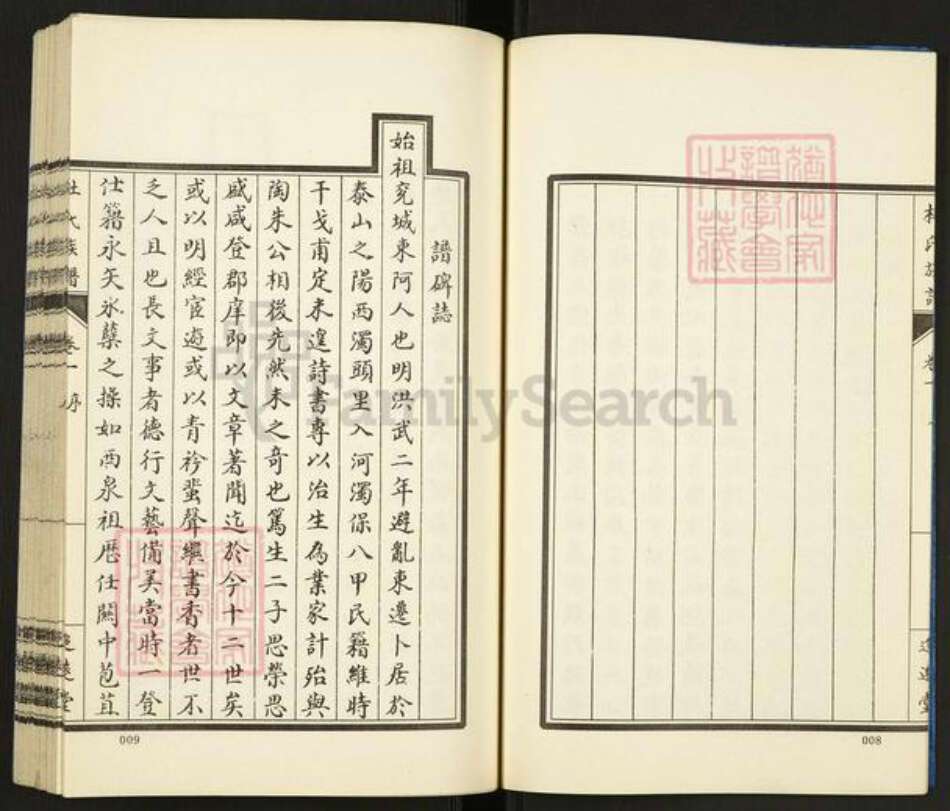 譜碑誌
始祖兖城東阿人也明洪武二年避亂東遷卜居於
泰山之陽西濁頭里入河濁保八甲民籍維時
干戈甫定未遑詩書專以治生為業家計殆與
陶朱公相後先然未之奇也篤生二子思榮思
威咸登郡庠即以文章著聞迄於今十二世矣
或以明經宦遊或以青衿蜚聲繼書香者世不
乏人且也長文事者德行文藝備美當時一登
仕籍永矢氷蘗之操如西泉祖歷任關中苞苴
杜氏族譜
卷一
序
追遠堂
009
杜氏族譜
卷一
追遠堂
008
FamilySearch